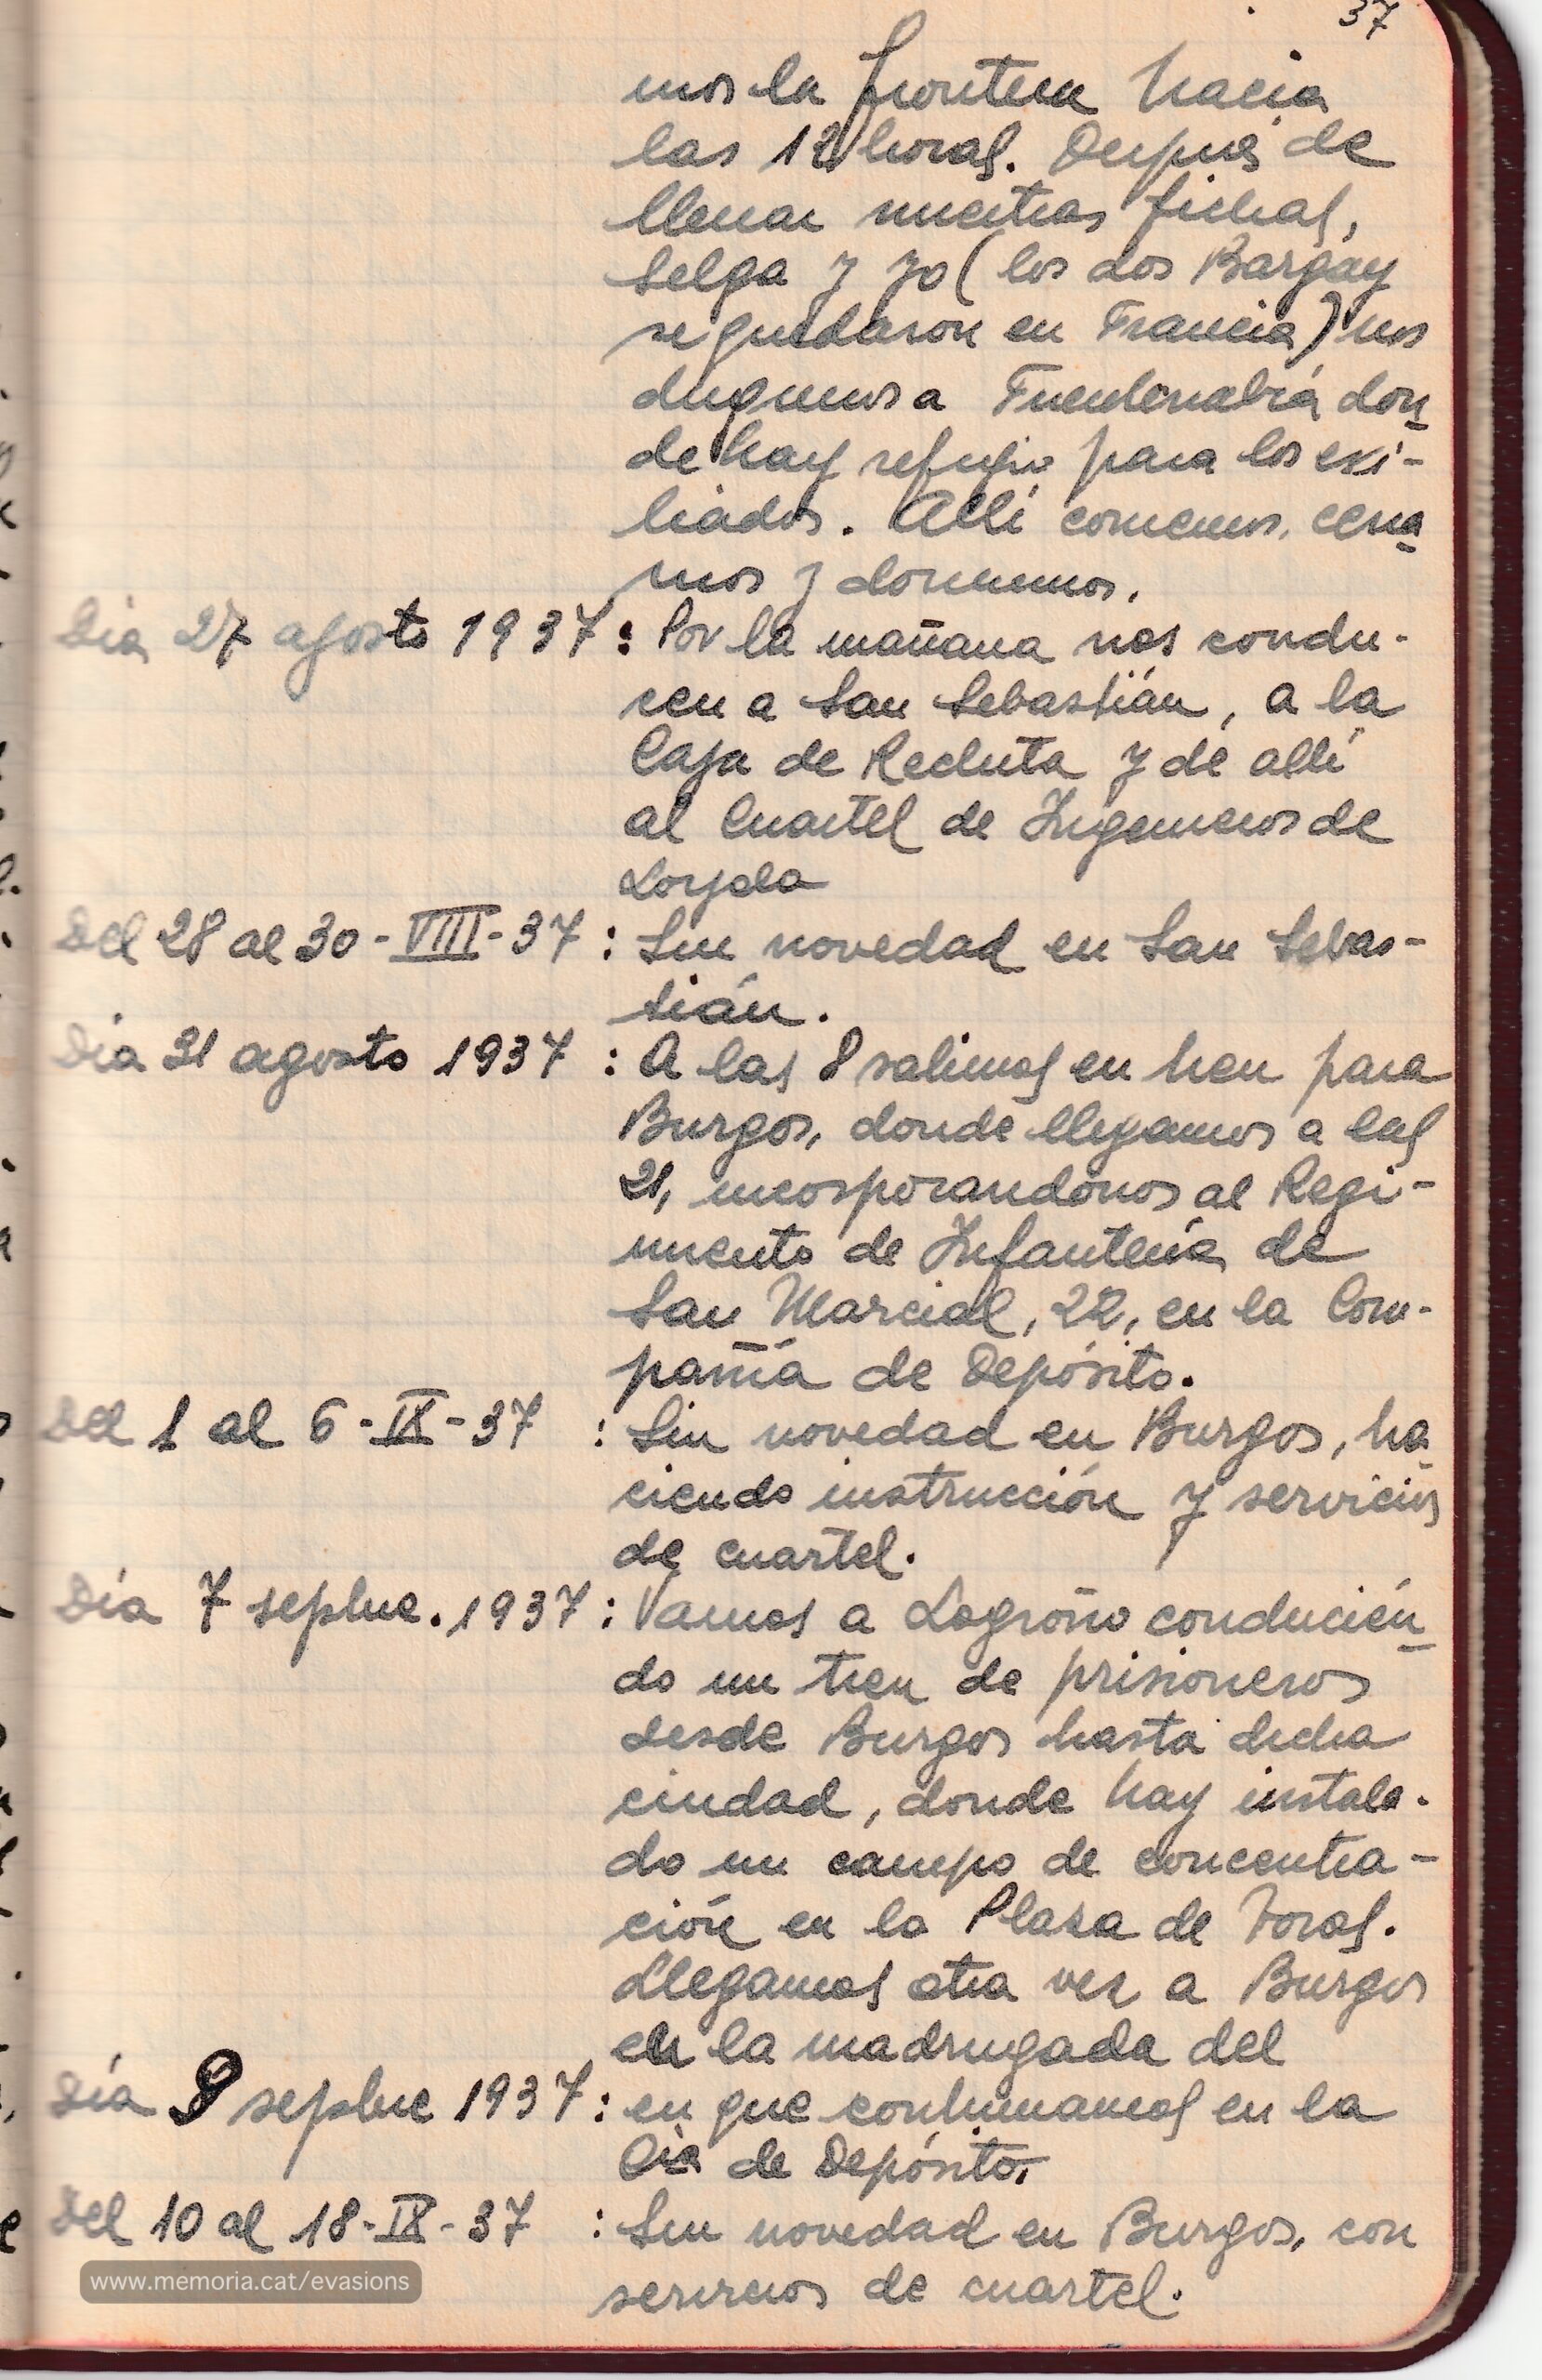 37
mos la frontera hacia
las 12 horas. Después de
llenar nuestras fichas,
Selga y yo (los dos Bargay
se quedaron en Francia) nos
dirigimos a Fuenterrabía don
de hay refugio para los exi-
liados. Allí comemos, cena
mos y dormimos.
Día 27 agosto 1937: Por la mañana nos condu-
cen a San Sebastián, a la
Caja de Recluta y de allí
al Cuartel de Ingenieros de
Loyola
Del 28 al 30-VIII-37: Sin novedad en San Sebas-
tián.
Día 31 agosto 1937: A las 8 salimos en tren para
Burgos, donde llegamos a las
21, incorporandonos al Regi-
miento de Infantería de
San Marcial, 22, en la Com-
pañía de Depósito.
Del 1 al 6-IX-37: Sin novedad en Burgos, ha
ciendo instrucción y servicios
de cuartel.
Día 7 sepbre. 1937: Vamos a Logroño conducién
do un tren de prisioneros
desde Burgos hasta dicha
ciudad, donde hay instala-
do un campo de concentra-
ción en la Plaza de Toros.
Llegamos otra vez a Burgos
en la madrugada del
Día 9 sepbre 1937: en que continuamos en la
Cia de Depósito.
Del 10 al 18-IX-37: Sin novedad en Burgos, con
servicios de cuartel.
www.memoria.cat/evasions